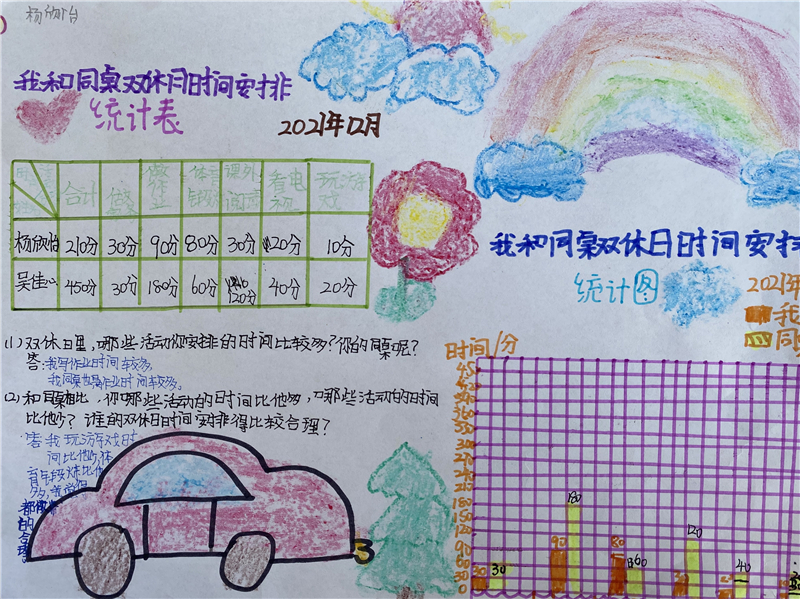 杨欣怡
我和同桌双休日时间安排
统计表
2021年12月
合计 做家 做作业 体育锻炼 课外阅读 看电视 玩游戏
杨欣怡 210分 30分 90分 80分 30分 20分 10分
吴佳心 450分 30分 180分 60分 120分 40分 20分
(1) 双休日里,哪些活动你安排的时间比较多?你的同桌呢?
答:我写作业时间较多,
我同桌也是作业时间较多。
(2) 和同桌相比,你哪些活动的时间比他多,哪些活动的时间
比他少?谁的双休日时间安排得比较合理?
答:我玩游戏时
间比他少,体
育锻炼比他
多,我觉得
都
的合
理
我和同桌双休日时间安排
统计图
2021年
我
同
时间/分
450
420
390
360
330
300
270
240
210
180
150
120
90
60
30
0
30 90 180 80 60 120 40